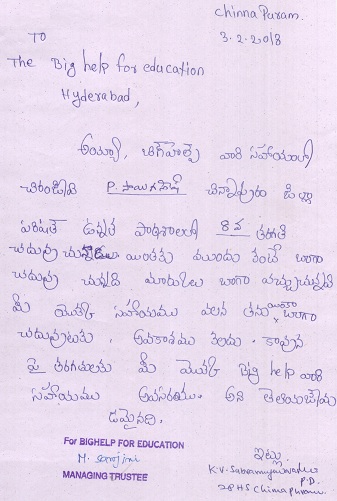 Chinna Puram.
3.2.2018
To
The Big help for education
Hyderabad,
అయ్యా, బిగ్‌హెల్ప్ వారి సహాయంగా
చిరంజీవి P. చిన్నాపురం జిల్లా
పరిషత్ ఉన్నత పాఠశాలలో 8వ తరగతి
చదువు చున్నాడు. యింతకు ముందు కంటే బాగా
చదువు చున్నది మార్కులు బాగా వచ్చుచున్నవి
మీ యొక్క సహాయము వలన తను ఇంకా బాగా
చదువుటకు, అవకాశము కలదు. కావున
పై తరగతులకు మీ యొక్క Big help వారి
సహాయము అవసరము. అని తెలియజేయ
డమైనది.
For BIGHELP FOR EDUCATION
M. Sarojini
MANAGING TRUSTEE
ఇట్లు
P.D.
ZPHS Chinnapuram.